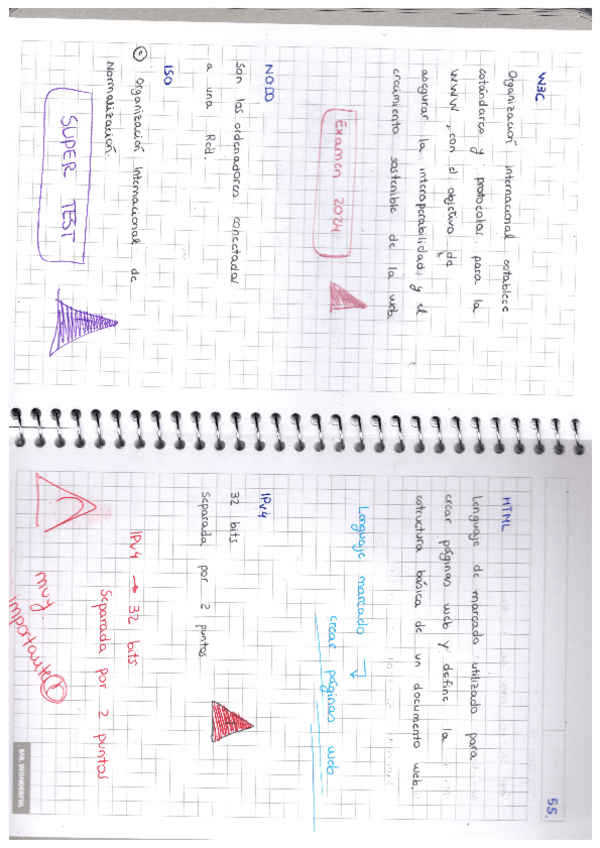 W3C
Organización internacional establece
estándares y protocolos para la
WWW, con el objetivo de
asegurar la interoperabilidad, y el
crecimiento sostenible de la web
Examen 2024
NODO
Son los ordenadores conectados
a una Red.
ISO
Organización Internacional de
Normalización.
SUPER TEST
55.
HTML
Lenguaje de marcado utilizado para
crear páginas web y define la
estructura básica de un documento web.
Lenguaje marcado
crear páginas web
IPv4
32 bits
Separada por 2 puntos
IPv4 → 32 bits
Separada por 2 puntos
muy
importante
MR. WONDERFUL